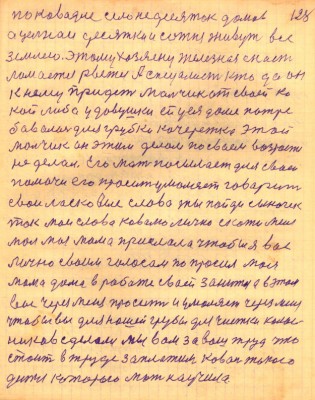 128
по кавадне село не десяток домов
а целаи десятки и сотня живут все
землею. Этому хозяену железная снаст
ламается рвется А спецалист кто до он
к нему придет молчик от своей ко
кой либа у довушки ст уся доме потре
бавалась для грубки качерешка этой
молчик он этим делом по своем возрасте
не делал. Его мат посылает для своей
помачи его просит умоляет говарит
свои ласковые слово ты пойди сыночек
так мои слова ковалю лично скажи меня
мол моя мама прислала чтобы я вас
лично своим голосам попросил моя
мама дома в работе своей занята а в этом
вас через меня просить и умоляет через меня
чтобы вы для нашей грубы для чистки колос
ников сделали мы вам за ваш труд что
стоит в труде заплатим, ковал такого
дитя которого мат научила